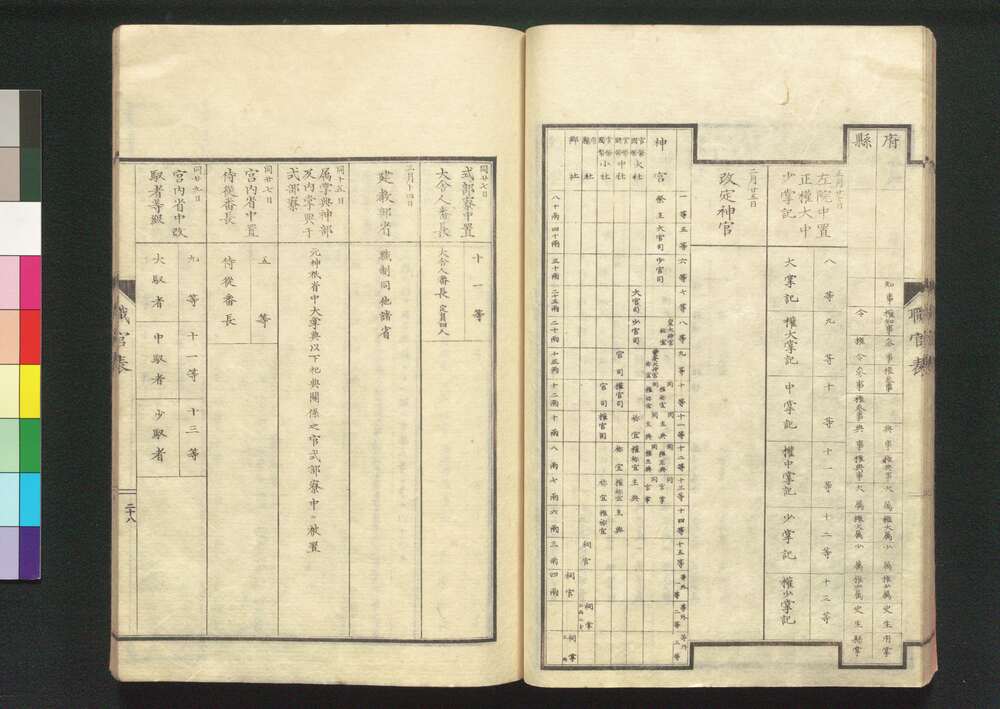 府縣
知事 權知事 參事 權參事 典事 權典事 大屬 權大屬 少屬 權少屬 史生 府掌
令 權令 參事 權參事 典事 權典事 大屬 權大屬 少屬 權少屬 史生 縣掌
左院中置
正權大中
少掌記
八等 九等 十等 十一等 十二等 十三等
大掌記 權大掌記 中掌記 權中掌記 少掌記 權少掌記
二月廿五日
改定神官
一等 五等 六等 七等 八等 九等 十等 十一等 十二等 十三等 十四等 十五等 等外一等 等外二等 等外三等
神官
祭主 大宮司 少宮司
大社
大宮司 少宮司 禰宜 權禰宜 主典
中社
宮司 權宮司 禰宜 權禰宜 主典
小社
宮司 權宮司 禰宜 權禰宜
縣社
祠官 祠掌
鄉社
祠官 祠掌
八十兩 四十兩 三十兩 二十五兩 二十兩 十五兩 十二兩 十兩 八兩 七兩 六兩 三兩 四兩
同廿七日
式部寮中置
大舍人番長
十一等
大舍人番長 定員四人
三月十四日
建教部省
職制同他諸省
同十五日
屬掌典神部
及內掌典于
式部寮
元神祇省中大掌典以下祀典關係之官式部寮中ヘ被置
同廿七日
宮內省中置
侍從番長
五等
侍從番長
同廿九日
宮內省中改
馭者等級
九等 十一等 十三等
大馭者 中馭者 少馭者
職官表
二十八
職官表